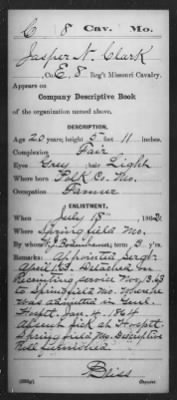 C 8 Cav. Mo.
Jasper N. Clark
, Co. E, 8 Reg't Missouri Cavalry.
Appears on
Company Descriptive Book
of the organization named above.
DESCRIPTION.
Age 20 years; height 5 feet 11 inches.
Complexion Fair
Eyes Grey ; hair Light
Where born Polk Co. Mo.
Occupation Farmer
ENLISTMENT.
When July 18 , 1862.
Where Springfield Mo.
By ; term 3 y'rs.
Remarks: Appointed Sergt
April 1/63. Detached on
Recruiting service Nov. 13.63
at Springfield Mo. where he
was admitted in Genl.
Hospt. Jan. 4. 1864
Absent sick at Hospt.
Springfield Mo. Descriptive
Roll furnished.
Bliss
Copyist.